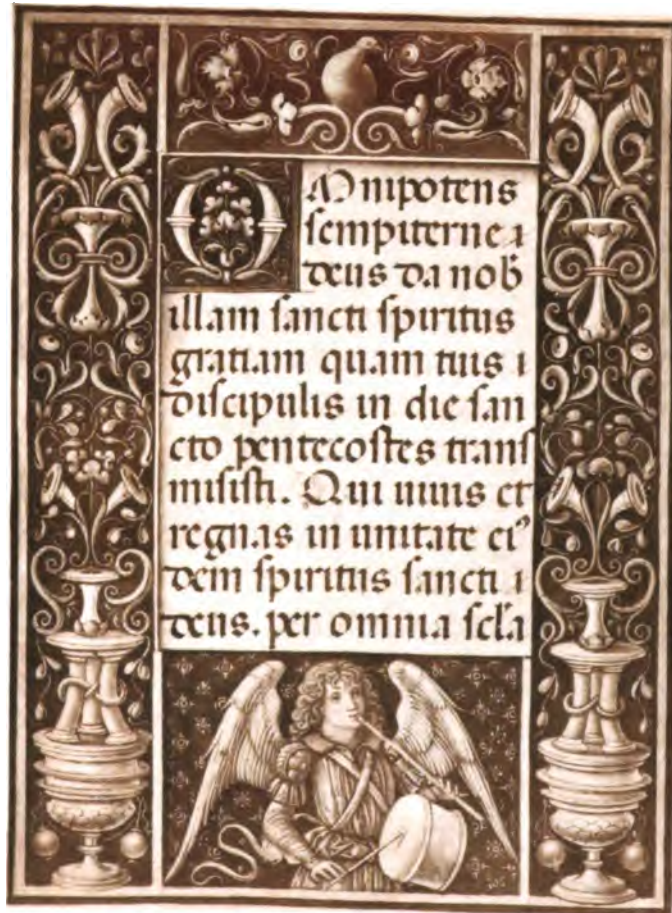 OMnipotens
sempiterne
deus da nob
illam sancti spiritus
gratiam quam tuis
discipulis in die san
cto pentecostes trans
misisti. Qui uiuis et
regnas in unitate eiꝰ
dem spiritus sancti
deus. per omnia scl̃a